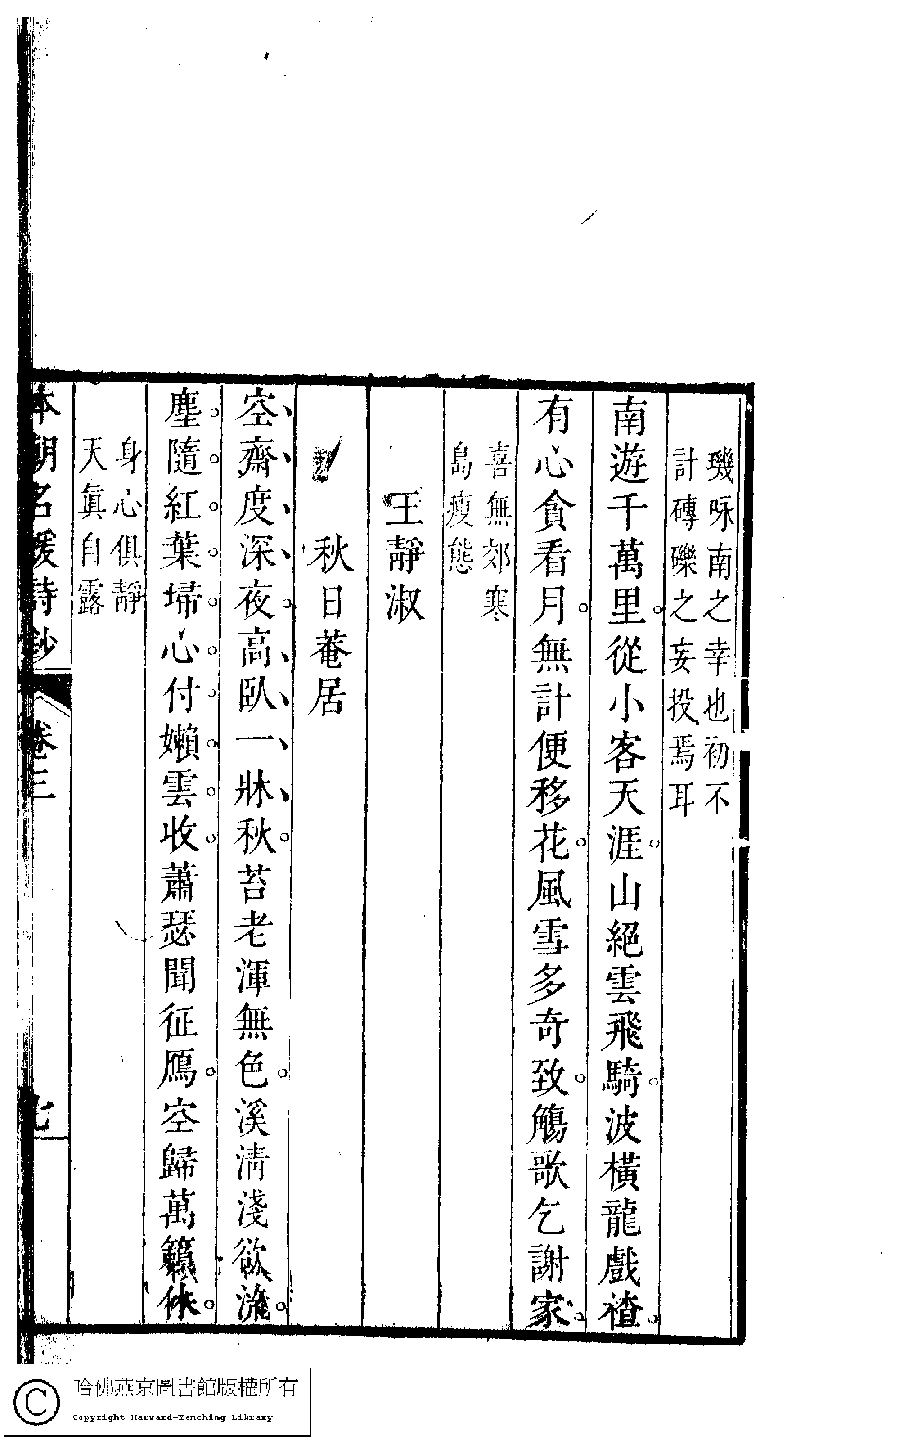 璣咏南之幸也初不
計磚礫之妄投焉耳
南遊千萬里從小客天涯山絕雲飛騎波橫龍戲楂
有心貪看月無計便移花風雪多奇致觴歌乞謝家
喜無郊寒
島瘦態
王靜淑
秋日菴居
空齋度深夜高臥一牀秋苔老渾無色溪清淺欲流
塵隨紅葉埽心付嬾雲收蕭瑟聞征鴈空歸萬籟休
身心俱靜
天眞自露
本朝名媛詩鈔
卷三
七
哈佛燕京圖書館版權所有
Copyright Harvard-Yenching Library